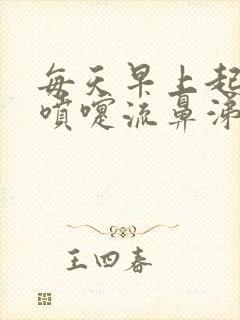 每天早上起
喷嚏流鼻涕
王四春